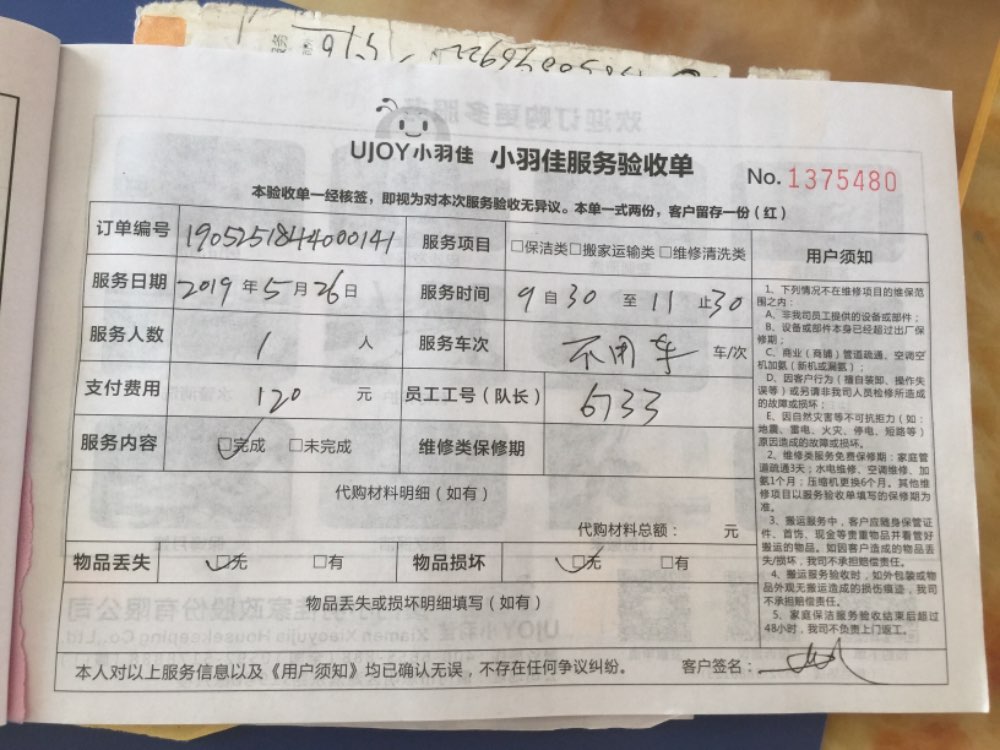 UJOY小羽佳 小羽佳服务验收单
No. 1375480
本验收单一经核签，即视为对本次服务验收无异议。本单一式两份，客户留存一份（红）
订单编号 190525184400141 服务项目 □保洁类□搬家运输类□维修清洗类
服务日期 2019年5月26日 服务时间 9自30至11止30
服务人数 1人 服务车次 不用车 车/次
支付费用 120元 员工工号（队长） 6733
服务内容 ☑完成 □未完成 维修类保修期
代购材料明细（如有）
代购材料总额： 元
物品丢失 ☑无 □有 物品损坏 ☑无 □有
物品丢失或损坏明细填写（如有）
本人对以上服务信息以及《用户须知》均已确认无误，不存在任何争议纠纷。 客户签名：
用户须知
1、下列情况不在维修项目的维保范
围之内：
A、非我司员工提供的设备或部件；
B、设备或部件本身已经超过出厂保
修期；
C、商业（商铺）管道疏通、空调空
机加氨（新机或漏氨）；
D、因客户行为（擅自装卸、操作失
误等）或另请非我司人员检修所造成
的故障或损坏；
E、因自然灾害等不可抗拒力（如：
地震、重电、火灾、停电、短路等）
原因造成的故障或损坏。
2、维修类服务免费保修期：家庭管
道疏通3天；水电维修、空调维修、加
氨1个月；压缩机更换6个月。其他维
修项目以服务验收单填写的保修期为
准。
3、搬运服务中，客户应随身保管证
件、首饰、现金等贵重物品并看管好
搬运的物品。如因客户造成的物品丢
失/损坏，我司不承担赔偿责任。
4、搬运服务验收时，如外包装或物
品外观无搬运造成的损伤痕迹，我司
不承担赔偿责任。
5、家庭保洁服务验收结束后超过
48小时，我司不负责上门返工。